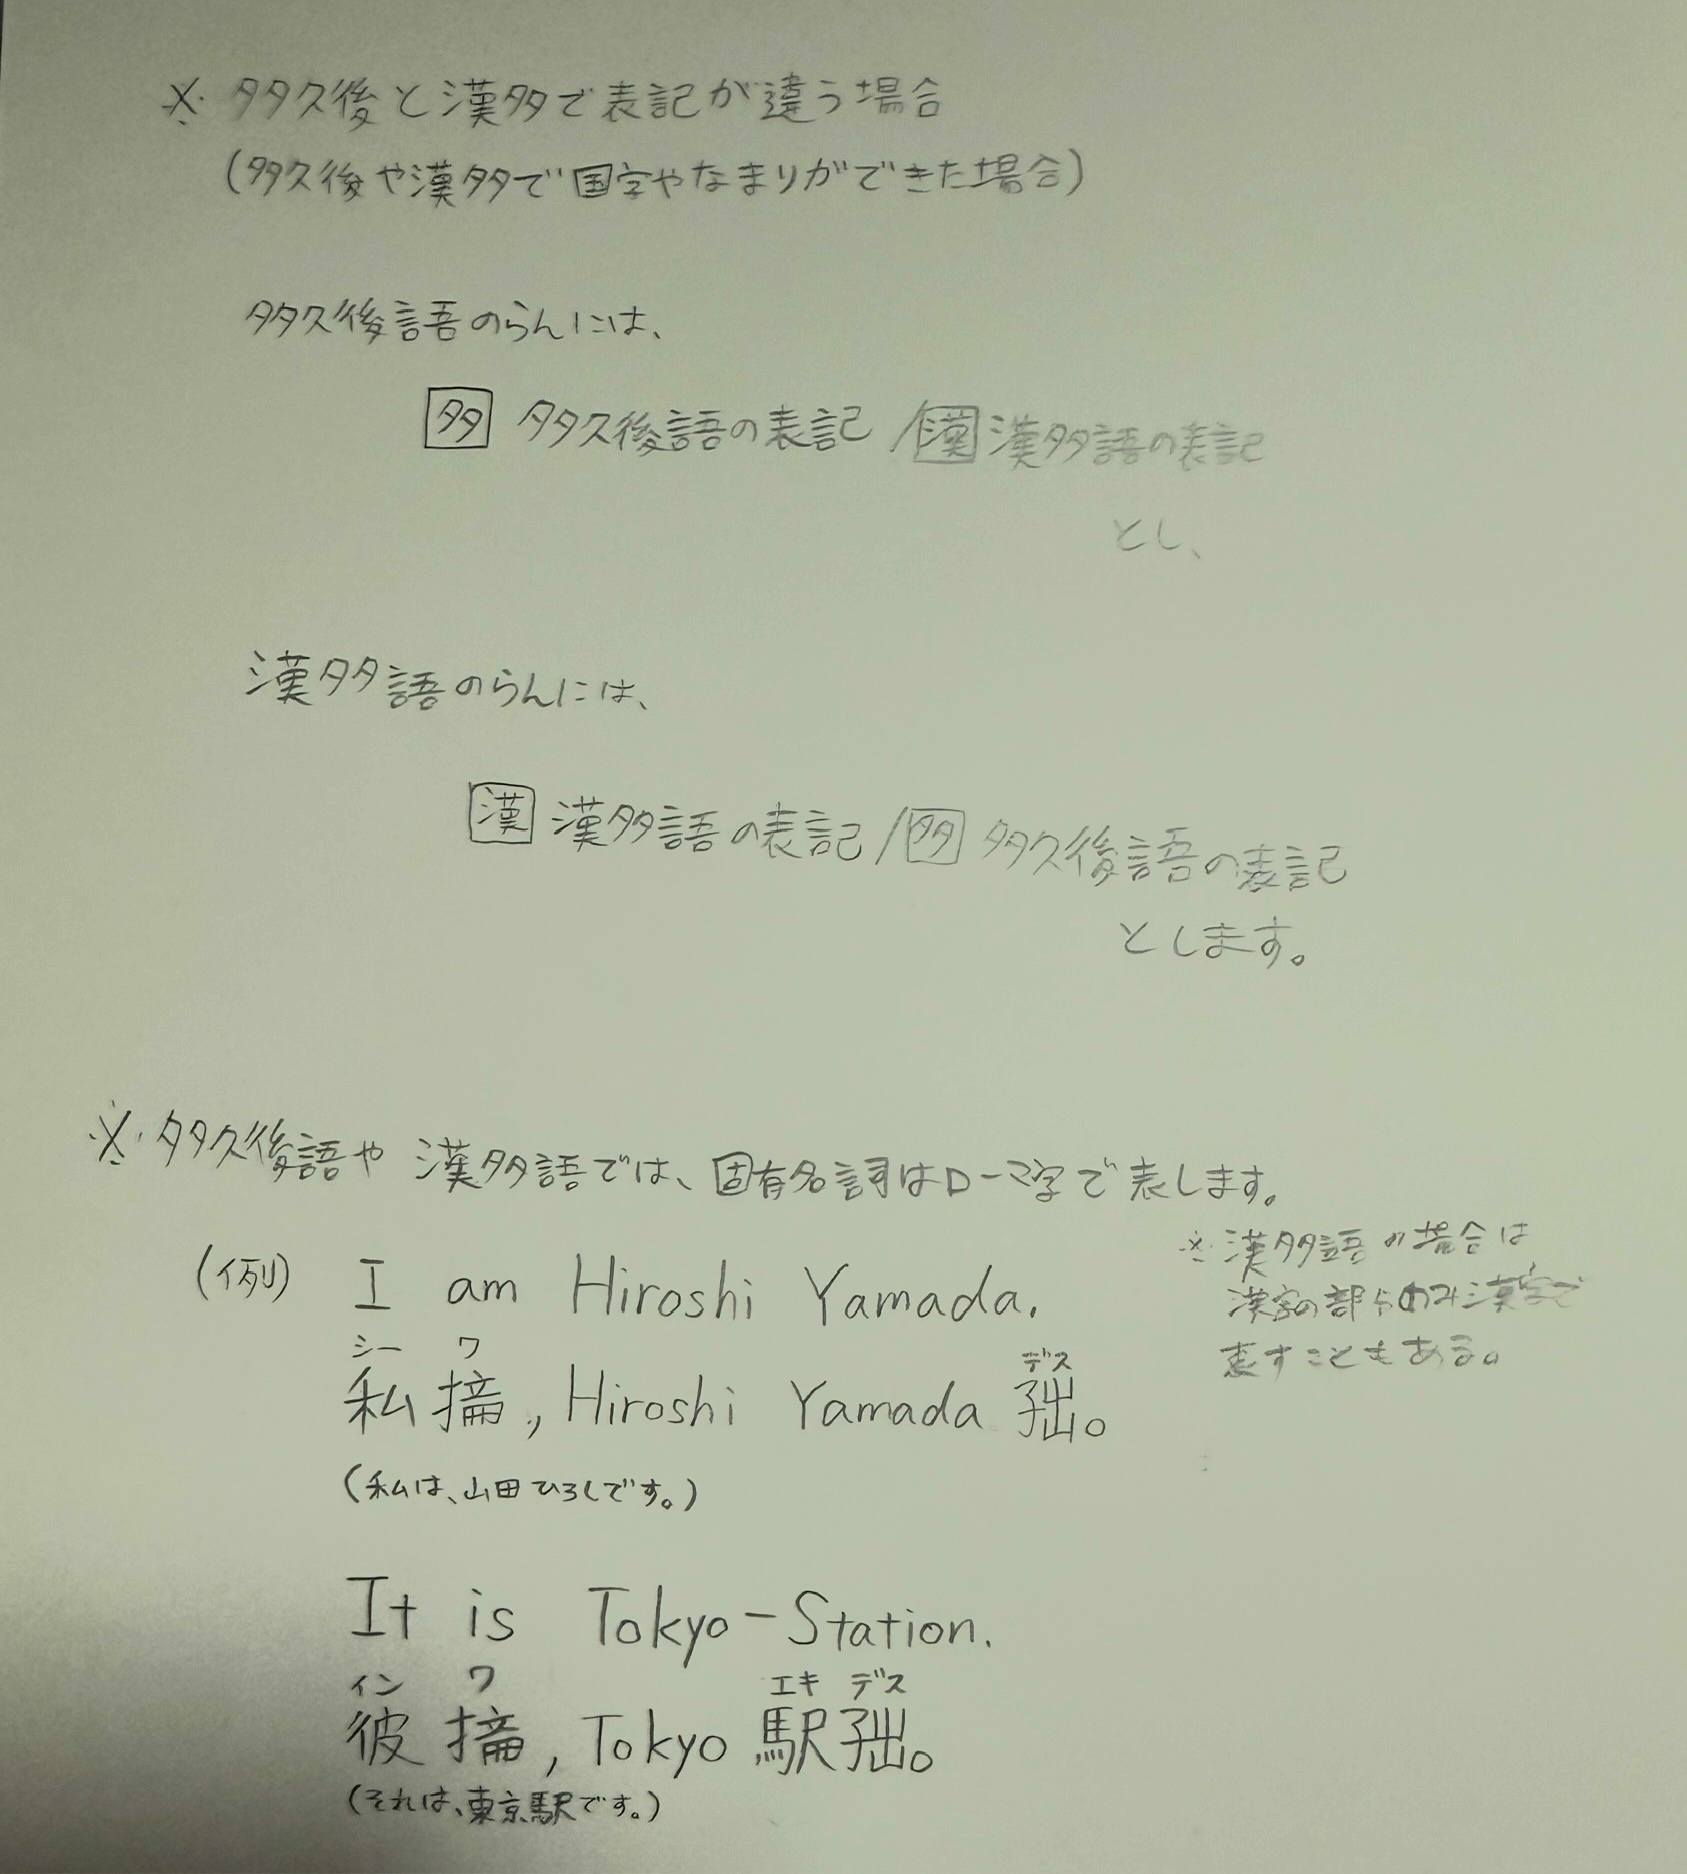 ※ 多久後と漢多で表記が違う場合
(多久後や漢多で国字やなまりができた場合)
多久後語のらんには、
多 多久後語の表記/漢 漢多語の表記
とし、
漢多語のらんには、
漢 漢多語の表記/多 多久後語の表記
とします。
※多久後語や 漢多語では、固有名詞はローマ字で表します。
※漢多語の場合は
漢字の部分のみ漢字で
表すこともある。
(例) I am Hiroshi Yamada.
シー ワ デス
私 , Hiroshi Yamada 。
(私は、山田ひろしです。)
It is Tokyo-Station.
イン ワ エキ デス
彼 , Tokyo 駅 。
(それは、東京駅です。)